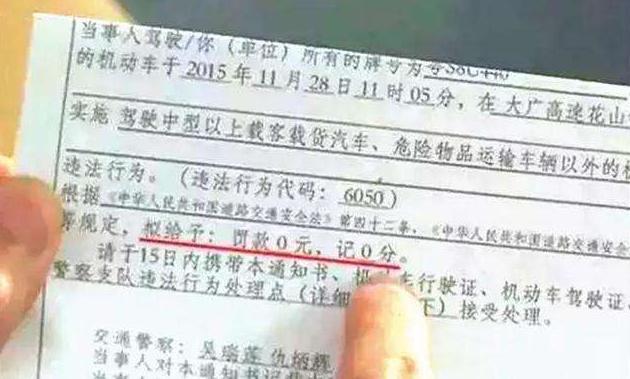 当事人驾驶/你（单位）所有的牌号为粤S8C440
的机动车于 2015 年 11 月 28 日 11 时 05 分，在 大广高速花山
实施 驾驶中型以上载客载货汽车、危险物品运输车辆以外的
违法行为。（违法行为代码：6050）
根据《中华人民共和国道路交通安全法》第四十二条，《中华人民共和国道路交通安全
等规定，拟给予：罚款 0 元，记 0 分。
请于15日内携带本通知书、机 行驶证、机动车驾驶证
警察支队违法行为处理点（详细 下）接受处理。
交通警察：
当事人对本通知书记